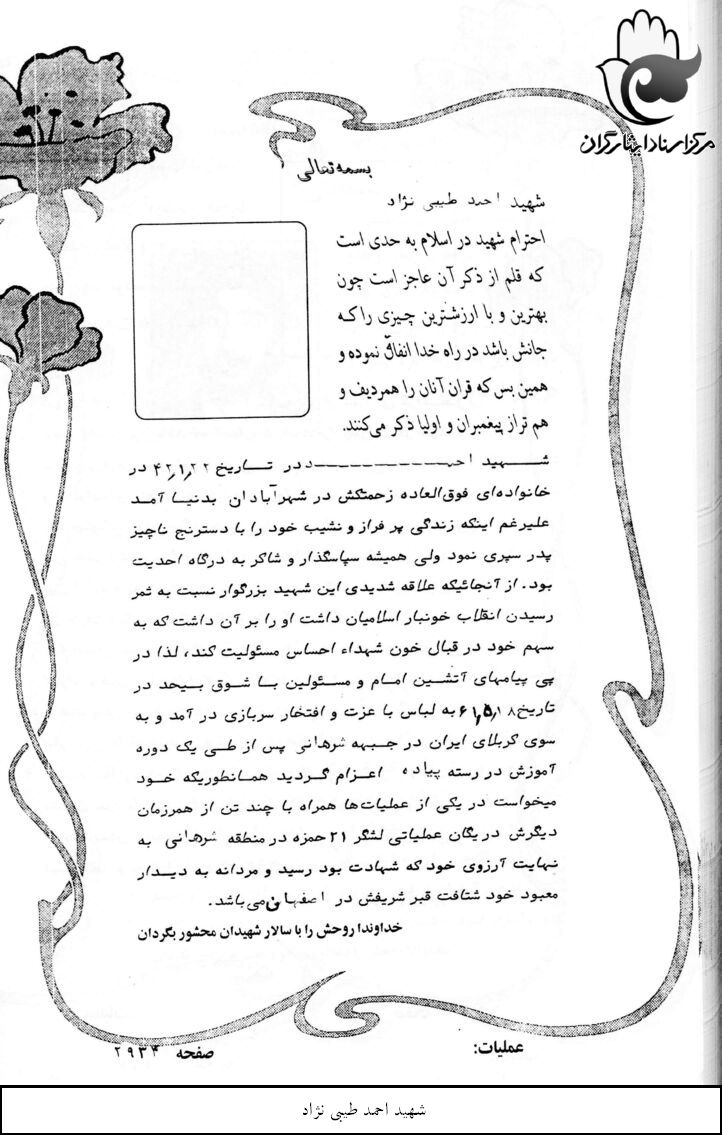 مرکز اسناد ایثارگران
بسمه تعالی
شهید احمد طیبی نژاد
احترام شهید در اسلام به حدی است
که قلم از ذکر آن عاجز است چون
بهترین و با ارزشترین چیزی را که
جانش باشد در راه خدا انفاق نموده و
همین بس که قران آنان را همردیف و
هم تراز پیغمبران و اولیا ذکر می‌کنند.
شهید احمد در تاریخ ۴۲٫۱٫۲۲ در
خانواده‌ای فوق‌العاده زحمتکش در شهر آبادان بدنیا آمد
علیرغم اینکه زندگی پر فراز و نشیب خود را با دسترنج ناچیز
پدر سپری نمود ولی همیشه سپاسگذار و شاکر به درگاه احدیت
بود. از آنجائیکه علاقه شدیدی این شهید بزرگوار نسبت به ثمر
رسیدن انقلاب خونبار اسلامیان داشت او را بر آن داشت که به
سهم خود در قبال خون شهداء احساس مسئولیت کند، لذا در
پی پیامهای آتشین امام و مسئولین با شوق بیحد در
تاریخ ۶۱٫۵٫۱۸ به لباس با عزت و افتخار سربازی در آمد و به
سوی کربلای ایران در جبهه شرهانی پس از طی یک دوره
آموزش در رسته پیاده اعزام گردید همانطوریکه خود
میخواست در یکی از عملیات‌ها همراه با چند تن از همرزمان
دیگرش در یگان عملیاتی لشگر ۲۱ حمزه در منطقه شرهانی به
نهایت آرزوی خود که شهادت بود رسید و مردانه به دیدار
معبود خود شتافت قبر شریفش در اصفهان می‌باشد.
خداوندا روحش را با سالار شهیدان محشور بگردان
عملیات: صفحه ۲۹۳۴
شهید احمد طیبی نژاد